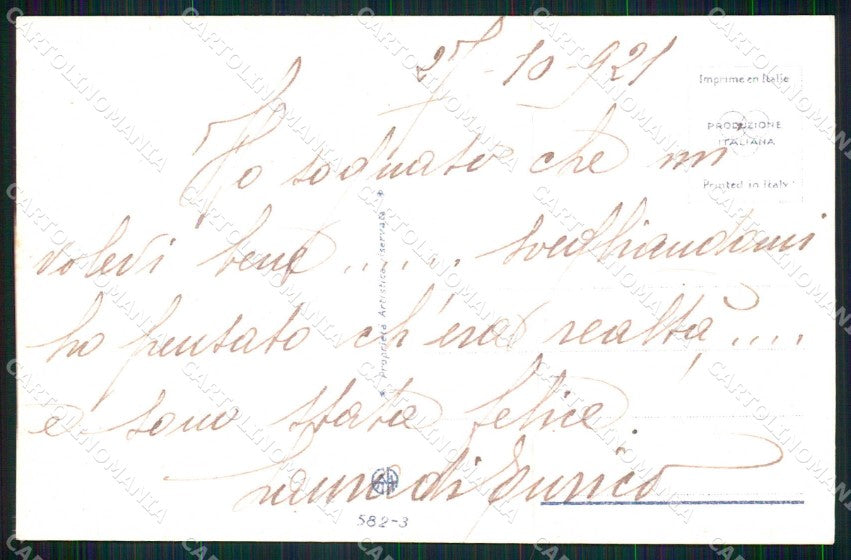 27-10-921
Imprimé en Italie
PRODUZIONE
ITALIANA
Printed in Italy
Ho sognato che mi
volevi bene ..... svegliandomi
ho pensato ch'era realtà ....
e sono stata felice.
di Enrico
Proprietà Artistica riservata
582-3
CARTOLINOMANIA